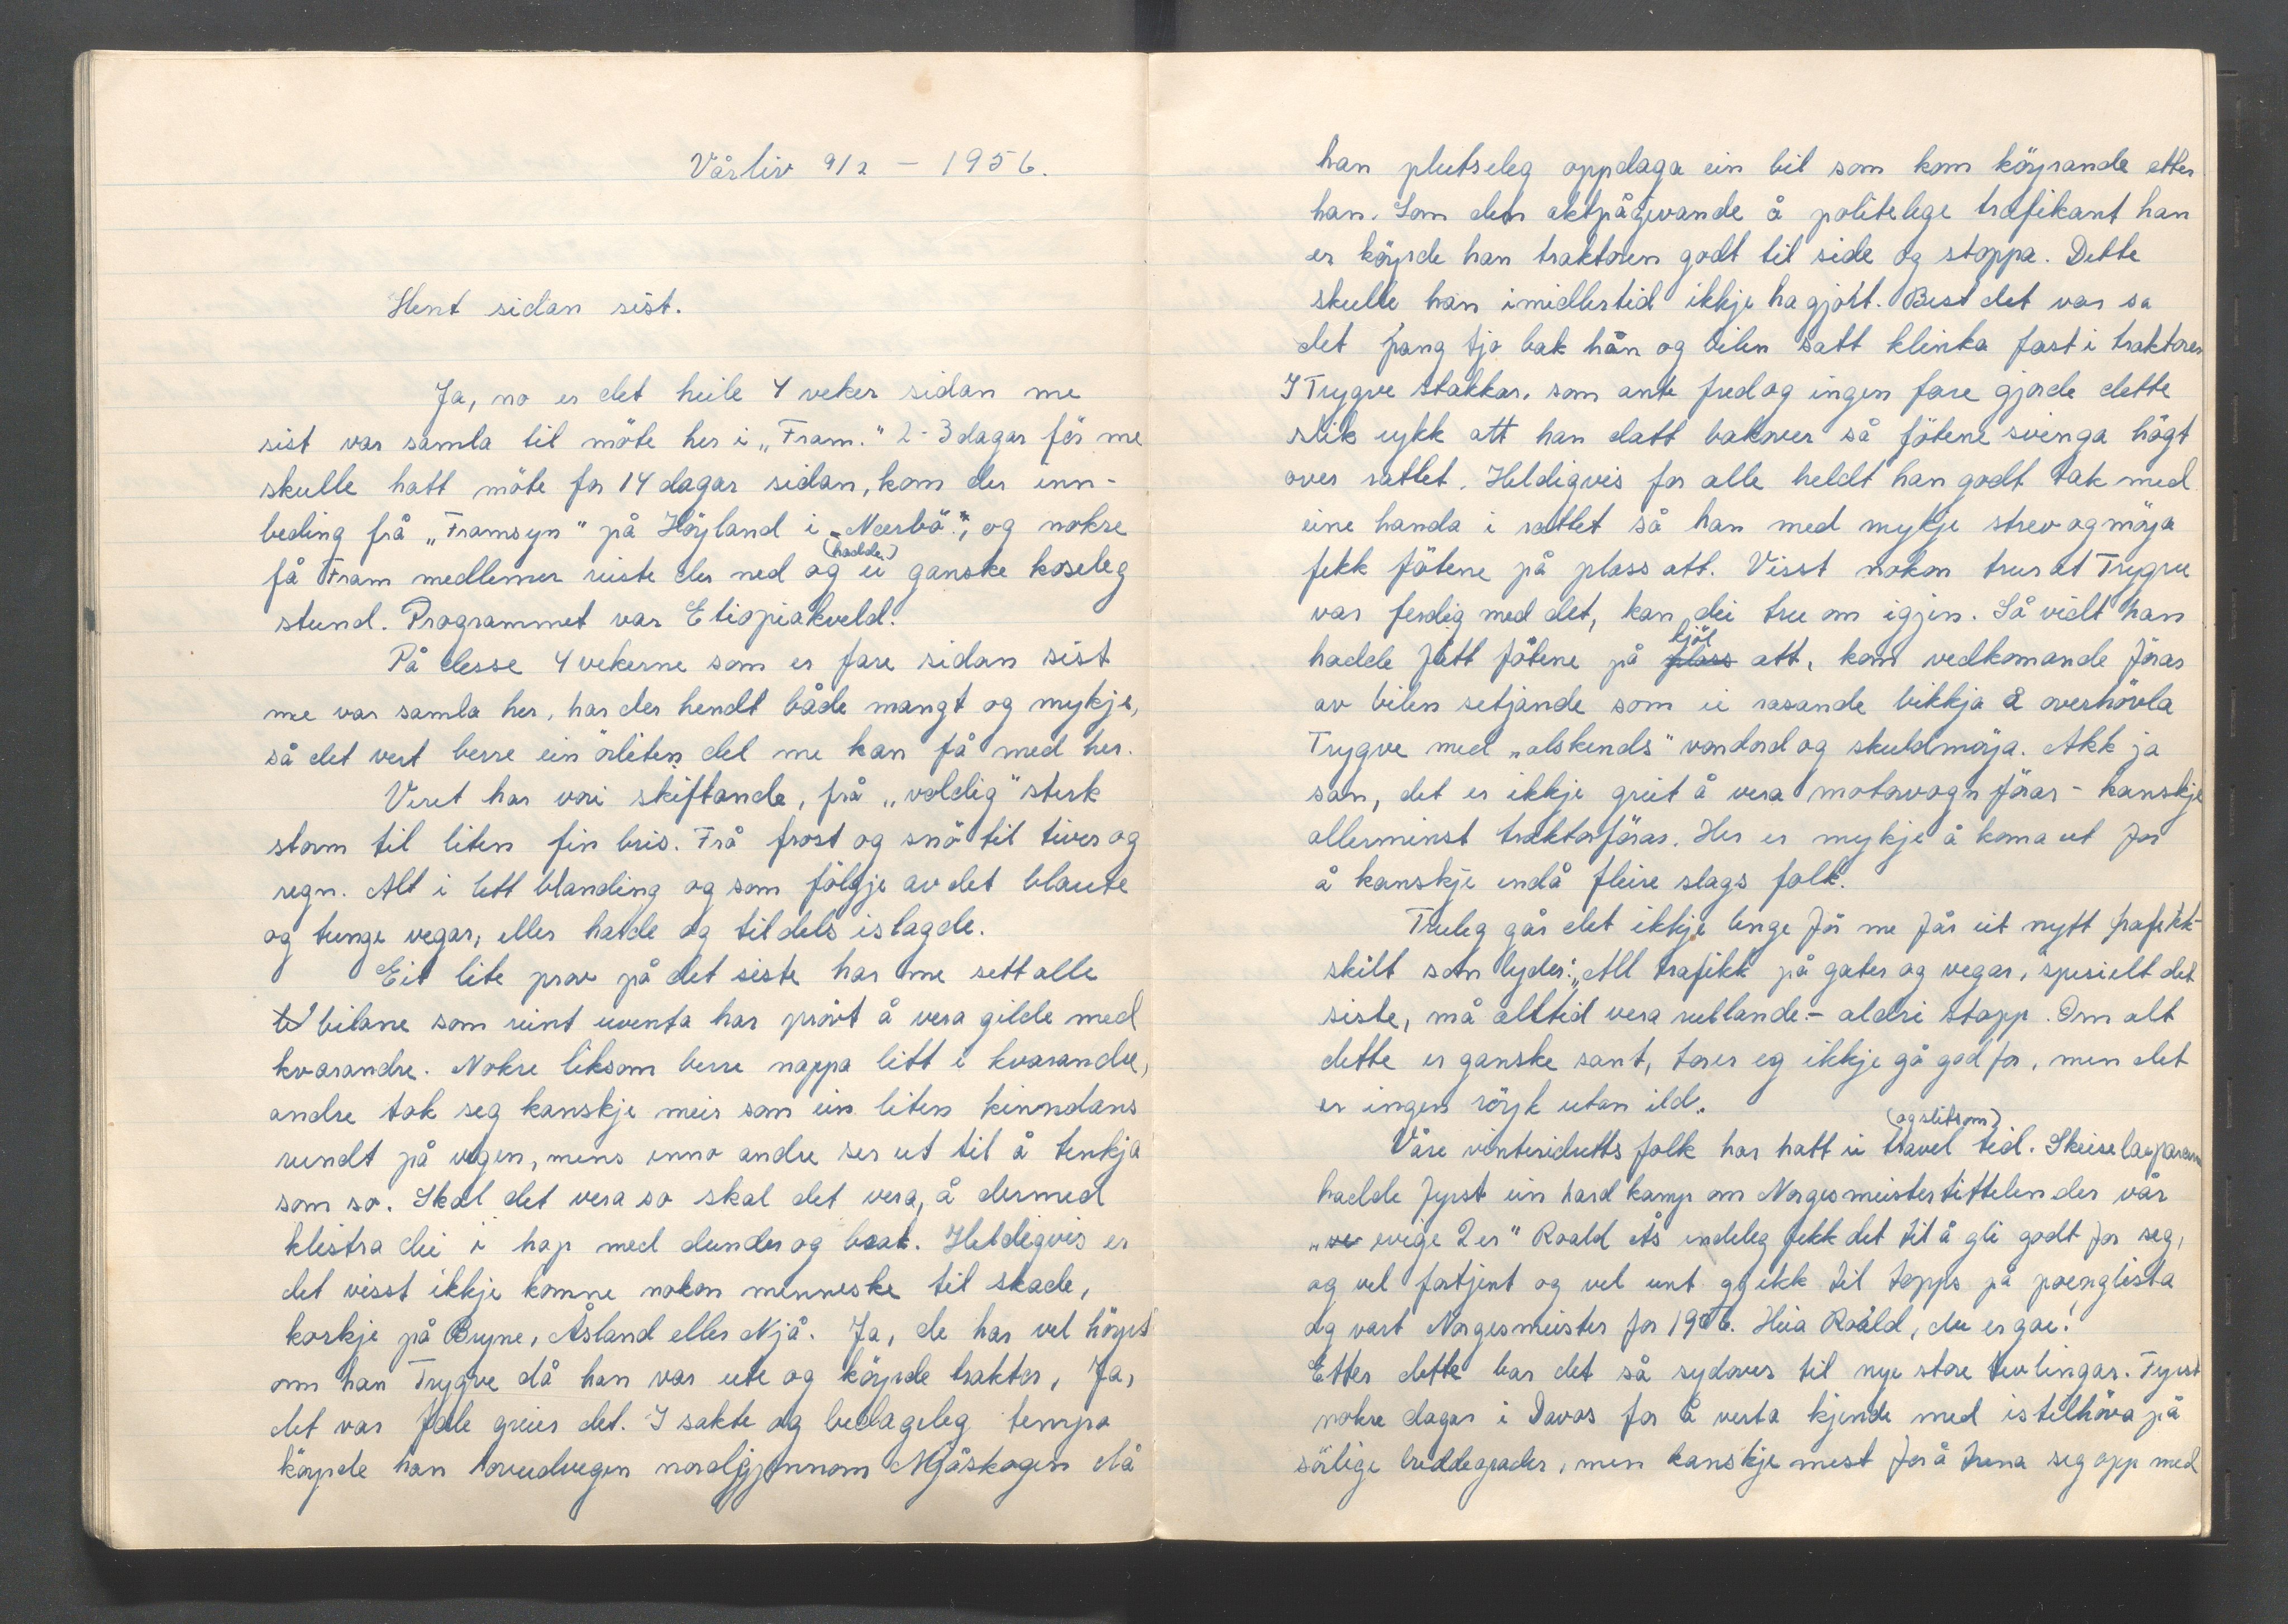 Vårliv 9/2 - 1956.
Hent sidan sist.
Ja, no er det heile 4 veker sidan me
sist var samla til möte her i „Fram." 2-3 dagar för me
skulle hatt möte for 14 dagar sidan, kom der inn-
beding frå „Framsyn" på Höyland i „Nærbö", og nokre
få Fram medlemer reiste der ned og (hadde) ei ganske koseleg
stund. Programmet var Etiopiakveld.
På desse 4 vekerne som er fare sidan sist
me var samla her, har der hendt både mangt og mykje,
så det vert berre ein örliten del me kan få med her.
Veret har vori skiftande, frå „veldig" sterk
storm til liten fin bris. Frå frost og snö til tiver og
regn. Alt i lett blanding og som fölgje av det blaute
og tunge vegar, eller hatde og tildels islagde.
Eit lite prov på det siste har me sett alle
te bilane som reint uventa har prövt å vera gilde med
kvarandre. Nokre liksom berre nappa litt i kvarandre,
andre tok seg kanskje meir som ein liten kinndans
rundt på vegen, mens enno andre ser ut til å tenkja
som so. Skal det vera so skal det vera, å dermed
klistra dei i hop med dunder og brak. Heldigvis er
det visst ikkje komne nokon menneske til skade,
korkje på Bryne, Åsland eller Njå. Ja, de har vel höyrt
om han Trygve då han var ute og köyrde traktor, Ja,
det var fole greier det. I sakte og bedageleg tempo
köyrde han hovudvegen nordigjennom Njåskogen då
han plutseleg oppdaga ein bil som kom köyrande etter
han. Som den aktpågjevande å politelege trafikant han
er köyrde han traktoren godt til side og stoppa. Dette
skulle han imidlertid ikkje ha gjort. Best det var sa
det pang tjo bak hån og bilen satt klinka fast i traktoren
I Trygve stakkar, som ante fred og ingen fare gjorde dette
slik rykk att han datt bakover så fötene svinga högt
over rattet. Heldigvis for alle heldt han godt tak med
eine handa i rattet så han med mykje strev og möya
fekk fötene på plass att. Visst nokon trur at Trygve
var ferdig med det, kan dei tru om igjen. Så vidt han
hadde fått fötene på plass kjöl att, kom vedkomande förar
av bilen setjande som ei rasande bikkja å overhövla
Trygve med „alskends" vondord og skuldmöya. Akk ja
san, det er ikkje greit å vera motorvogn förar - kanskje
allerminst traktorförar. Her er mykje å koma ut for
å kanskje endå fleire slags folk.
Truleg går det ikkje lenge för me får eit nytt trafikk-
skilt som lyder: „All trafikk på gater og vegar, spesielt det
siste, må alltid vera rullande.- aldri stopp. Om alt
dette er ganske sant, torer eg ikkje gå god for, men det
er ingen röyk utan ild.
Våre vinteridretts folk har hatt ei travel (og slitsom) tid. Skeiselaeparane
hadde fyrst ein hard kamp om Norgesmeistertittelen der vår
„ve evige 2er" Roald Ås endeleg fekk det til å gli godt for seg,
og vel fortjent og vel unt ggikk til topps på poenglista
og vart Norgesmeister for 1956. Heia Roald, du er goe!
Etter dette bar det så sydover til nye store tevlingar. Fyrst
nokre dagar i Davos for å verta kjende med istilhöva på
sörlige breddegrader, men kanskje mest for å trena seg opp med